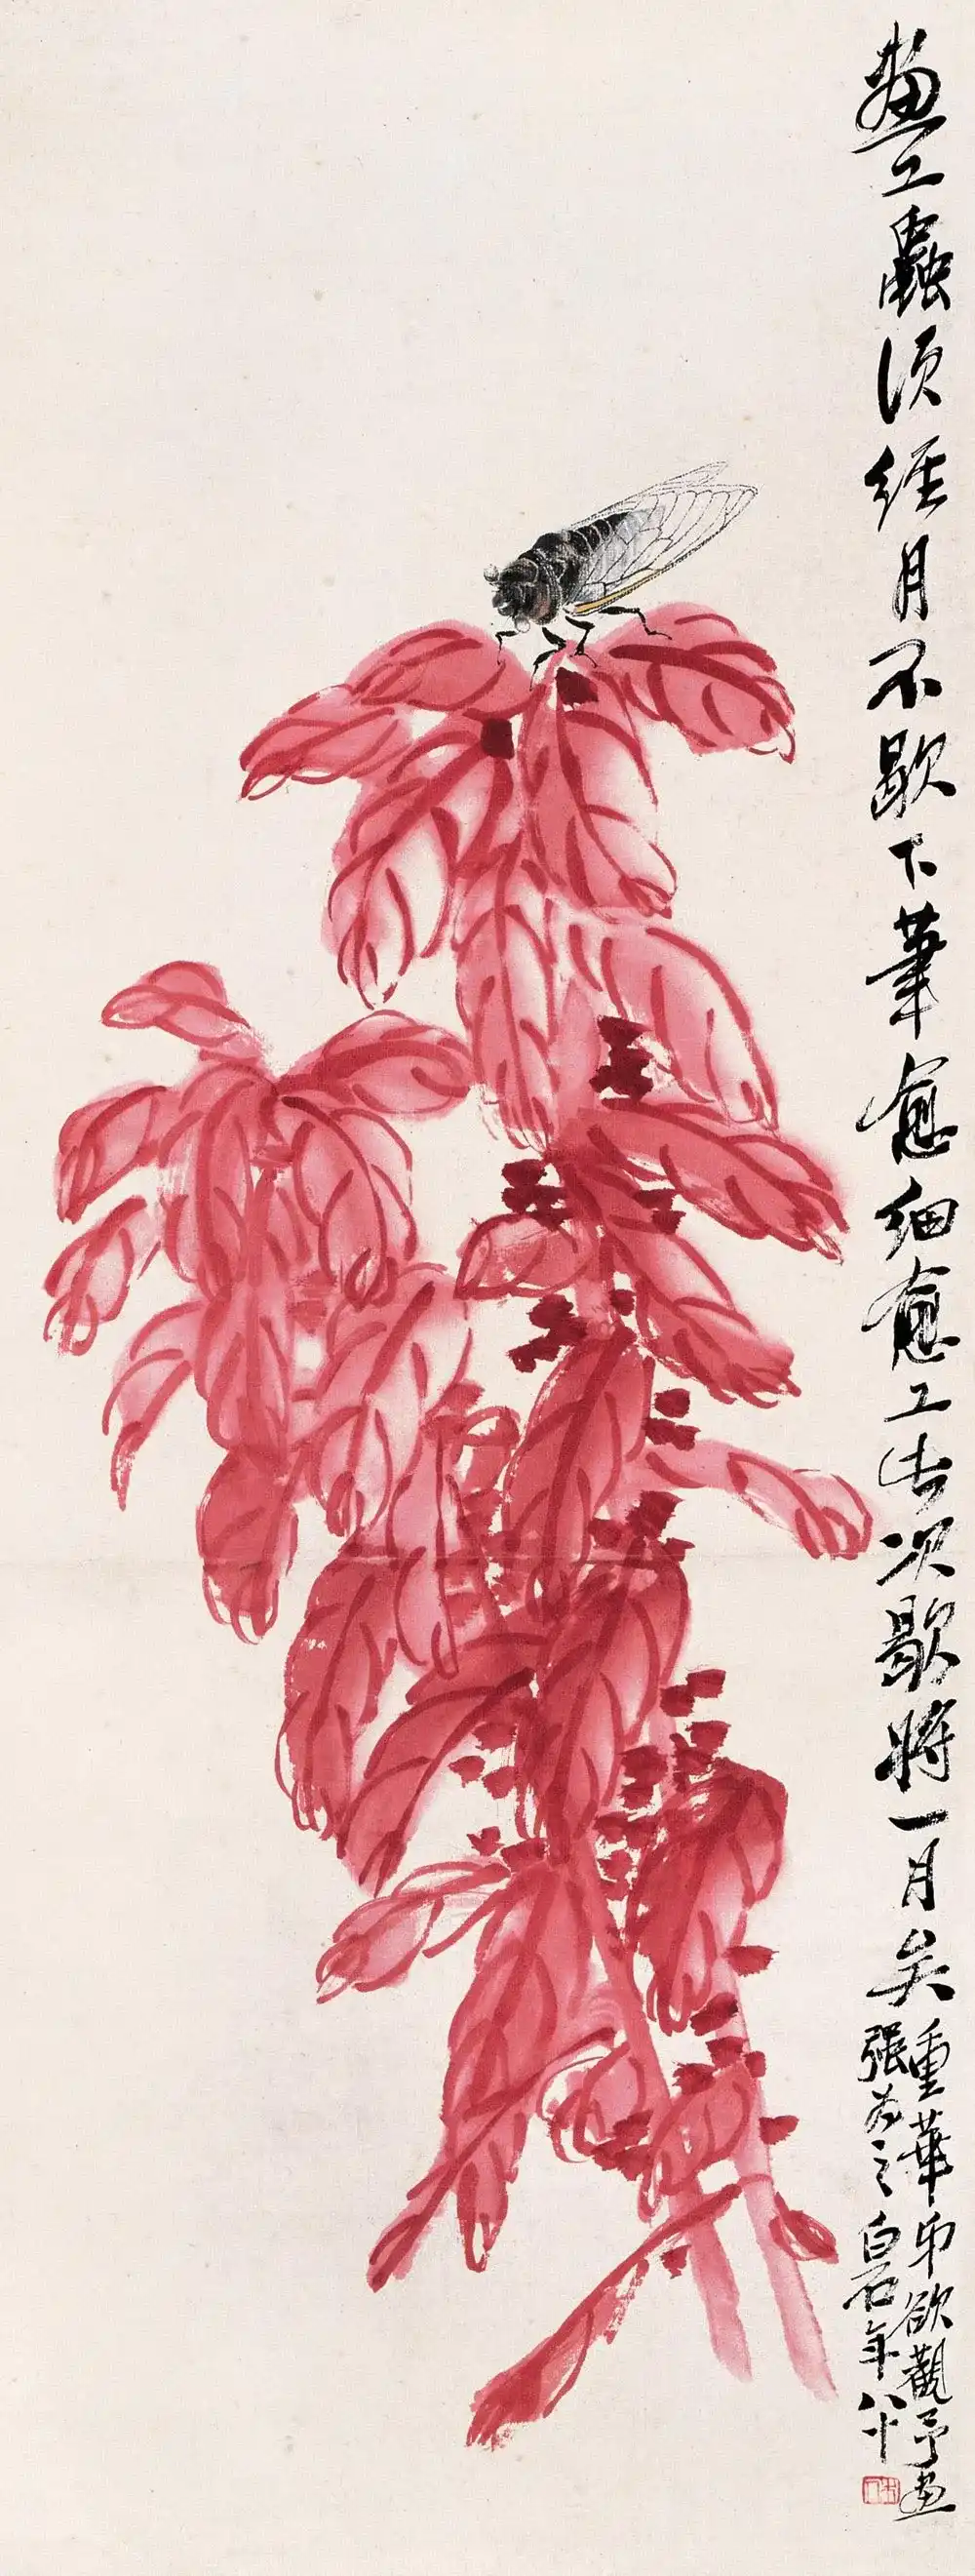 畫工蟲須經月不歇下筆愈細愈工此次歇將一月矣
重華弟欲觀予畫
強為之白石年八十
木人